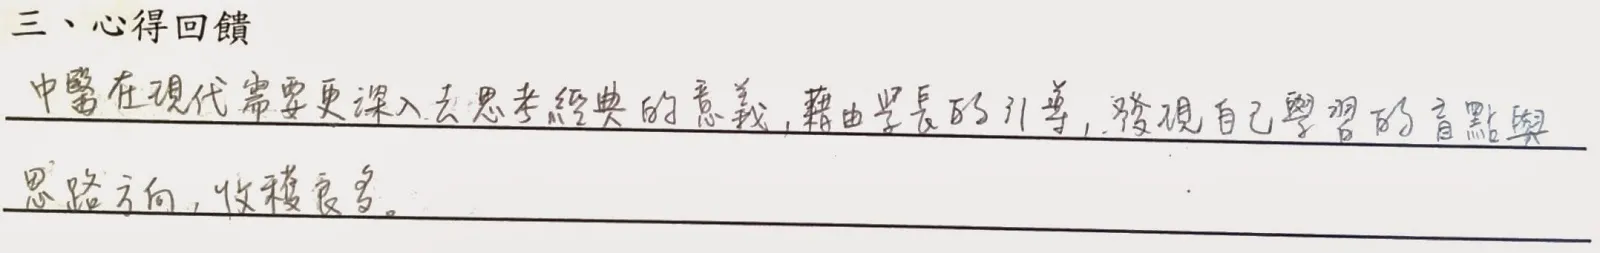 三、心得回饋
中醫在現代需要更深入去思考經典的意義,藉由學長的引導,發現自己學習的盲點與
思路方向,收穫良多。